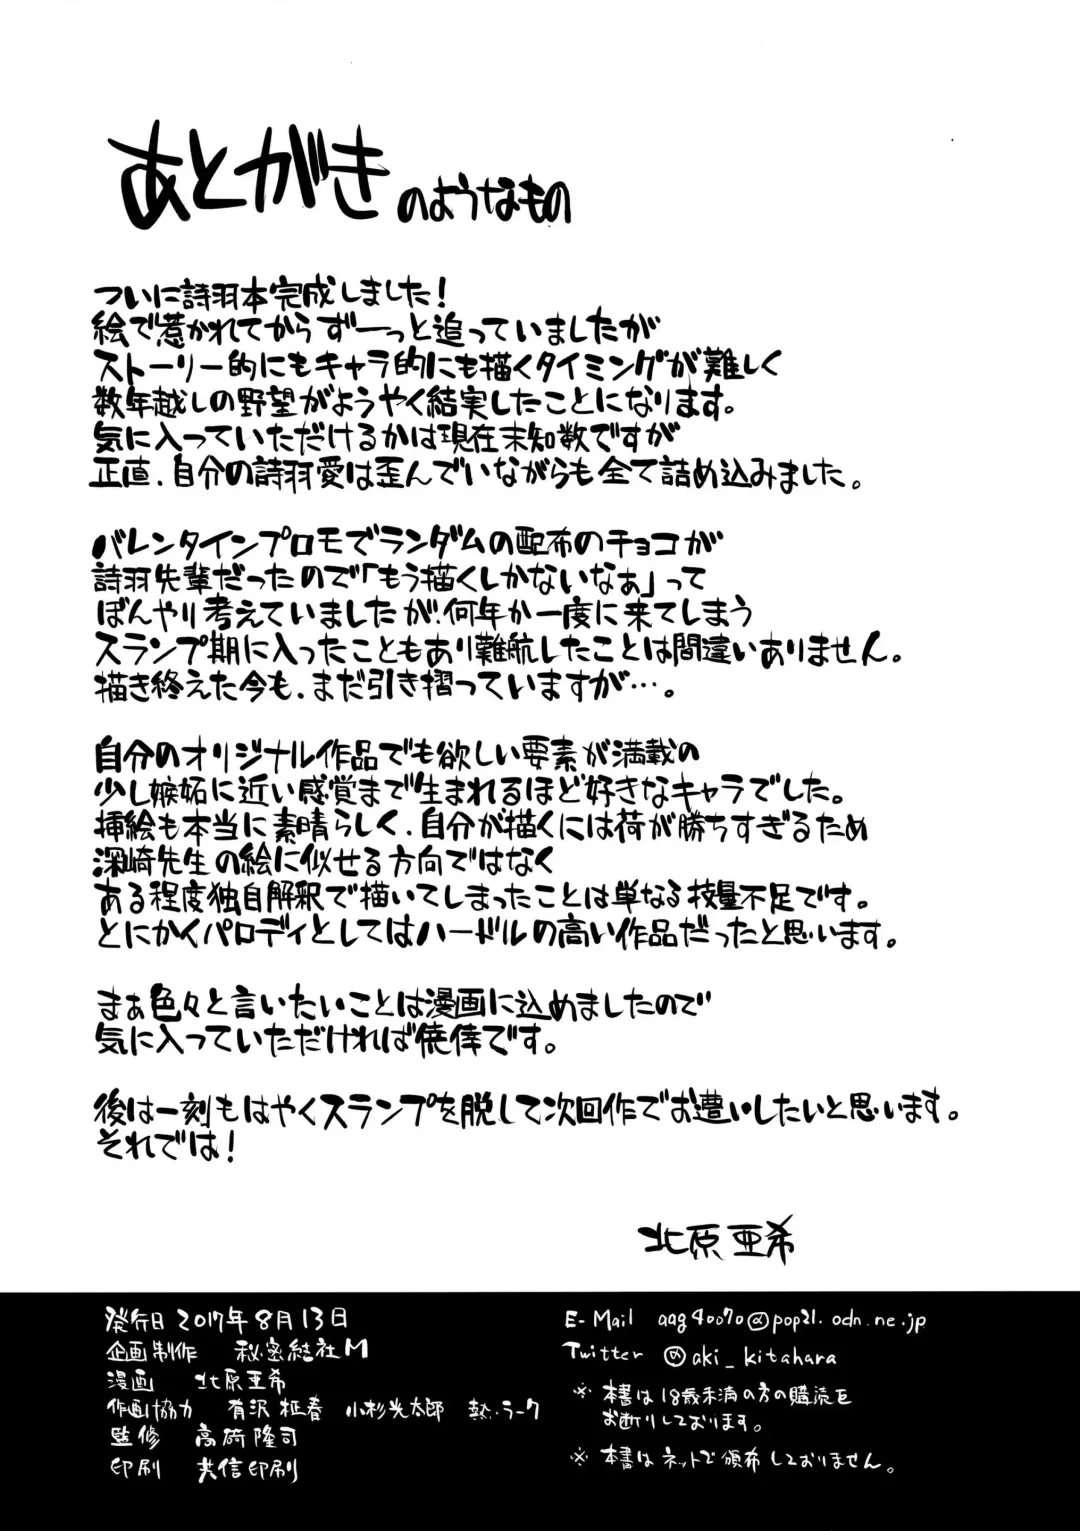 あとがきのようなもの
ついに詩羽本完成しました!
絵で惹かれてからずーっと追っていましたが
ストーリー的にもキャラ的にも描くタイミングが難しく
数年越しの野望がようやく結実したことになります。
気に入っていただけるかは現在未知数ですが
正直、自分の詩羽愛は歪んでいながらも全て詰め込みました。
バレンタインプロモでランダムの配布のチョコが
詩羽先輩だったので「もう描くしかないなぁ」って
ぼんやり考えていましたが、何年か一度に来てしまう
スランプ期に入ったこともあり難航したことは間違いありません。
描き終えた今も、まだ引き摺っていますが…。
自分のオリジナル作品でも欲しい要素が満載の
少し嫉妬に近い感覚まで生まれるほど好きなキャラでした。
挿絵も本当に素晴らしく、自分が描くには荷が勝ちすぎるため
深崎先生の絵に似せる方向ではなく
ある程度独自解釈で描いてしまったことは単なる技量不足です。
とにかくパロディとしてはハードルの高い作品だったと思います。
まぁ色々と言いたいことは漫画に込めましたので
気に入っていただければ僥倖です。
後は一刻もはやくスランプを脱して次回作でお遭いしたいと思います。
それでは!
北原亜希
発行日 2017年8月13日
企画制作 秘密結社M
漫画 北原亜希
作画協力 有沢 柾春 小杉光太郎 熱・ラーク
監修 高荷 隆司
印刷 共信印刷
E-Mail aag40070@pop21.odn.ne.jp
Twitter @aki_kitahara
※ 本書は18歳未満の方の購読を
お断りしております。
※ 本書はネットで頒布しておりません。